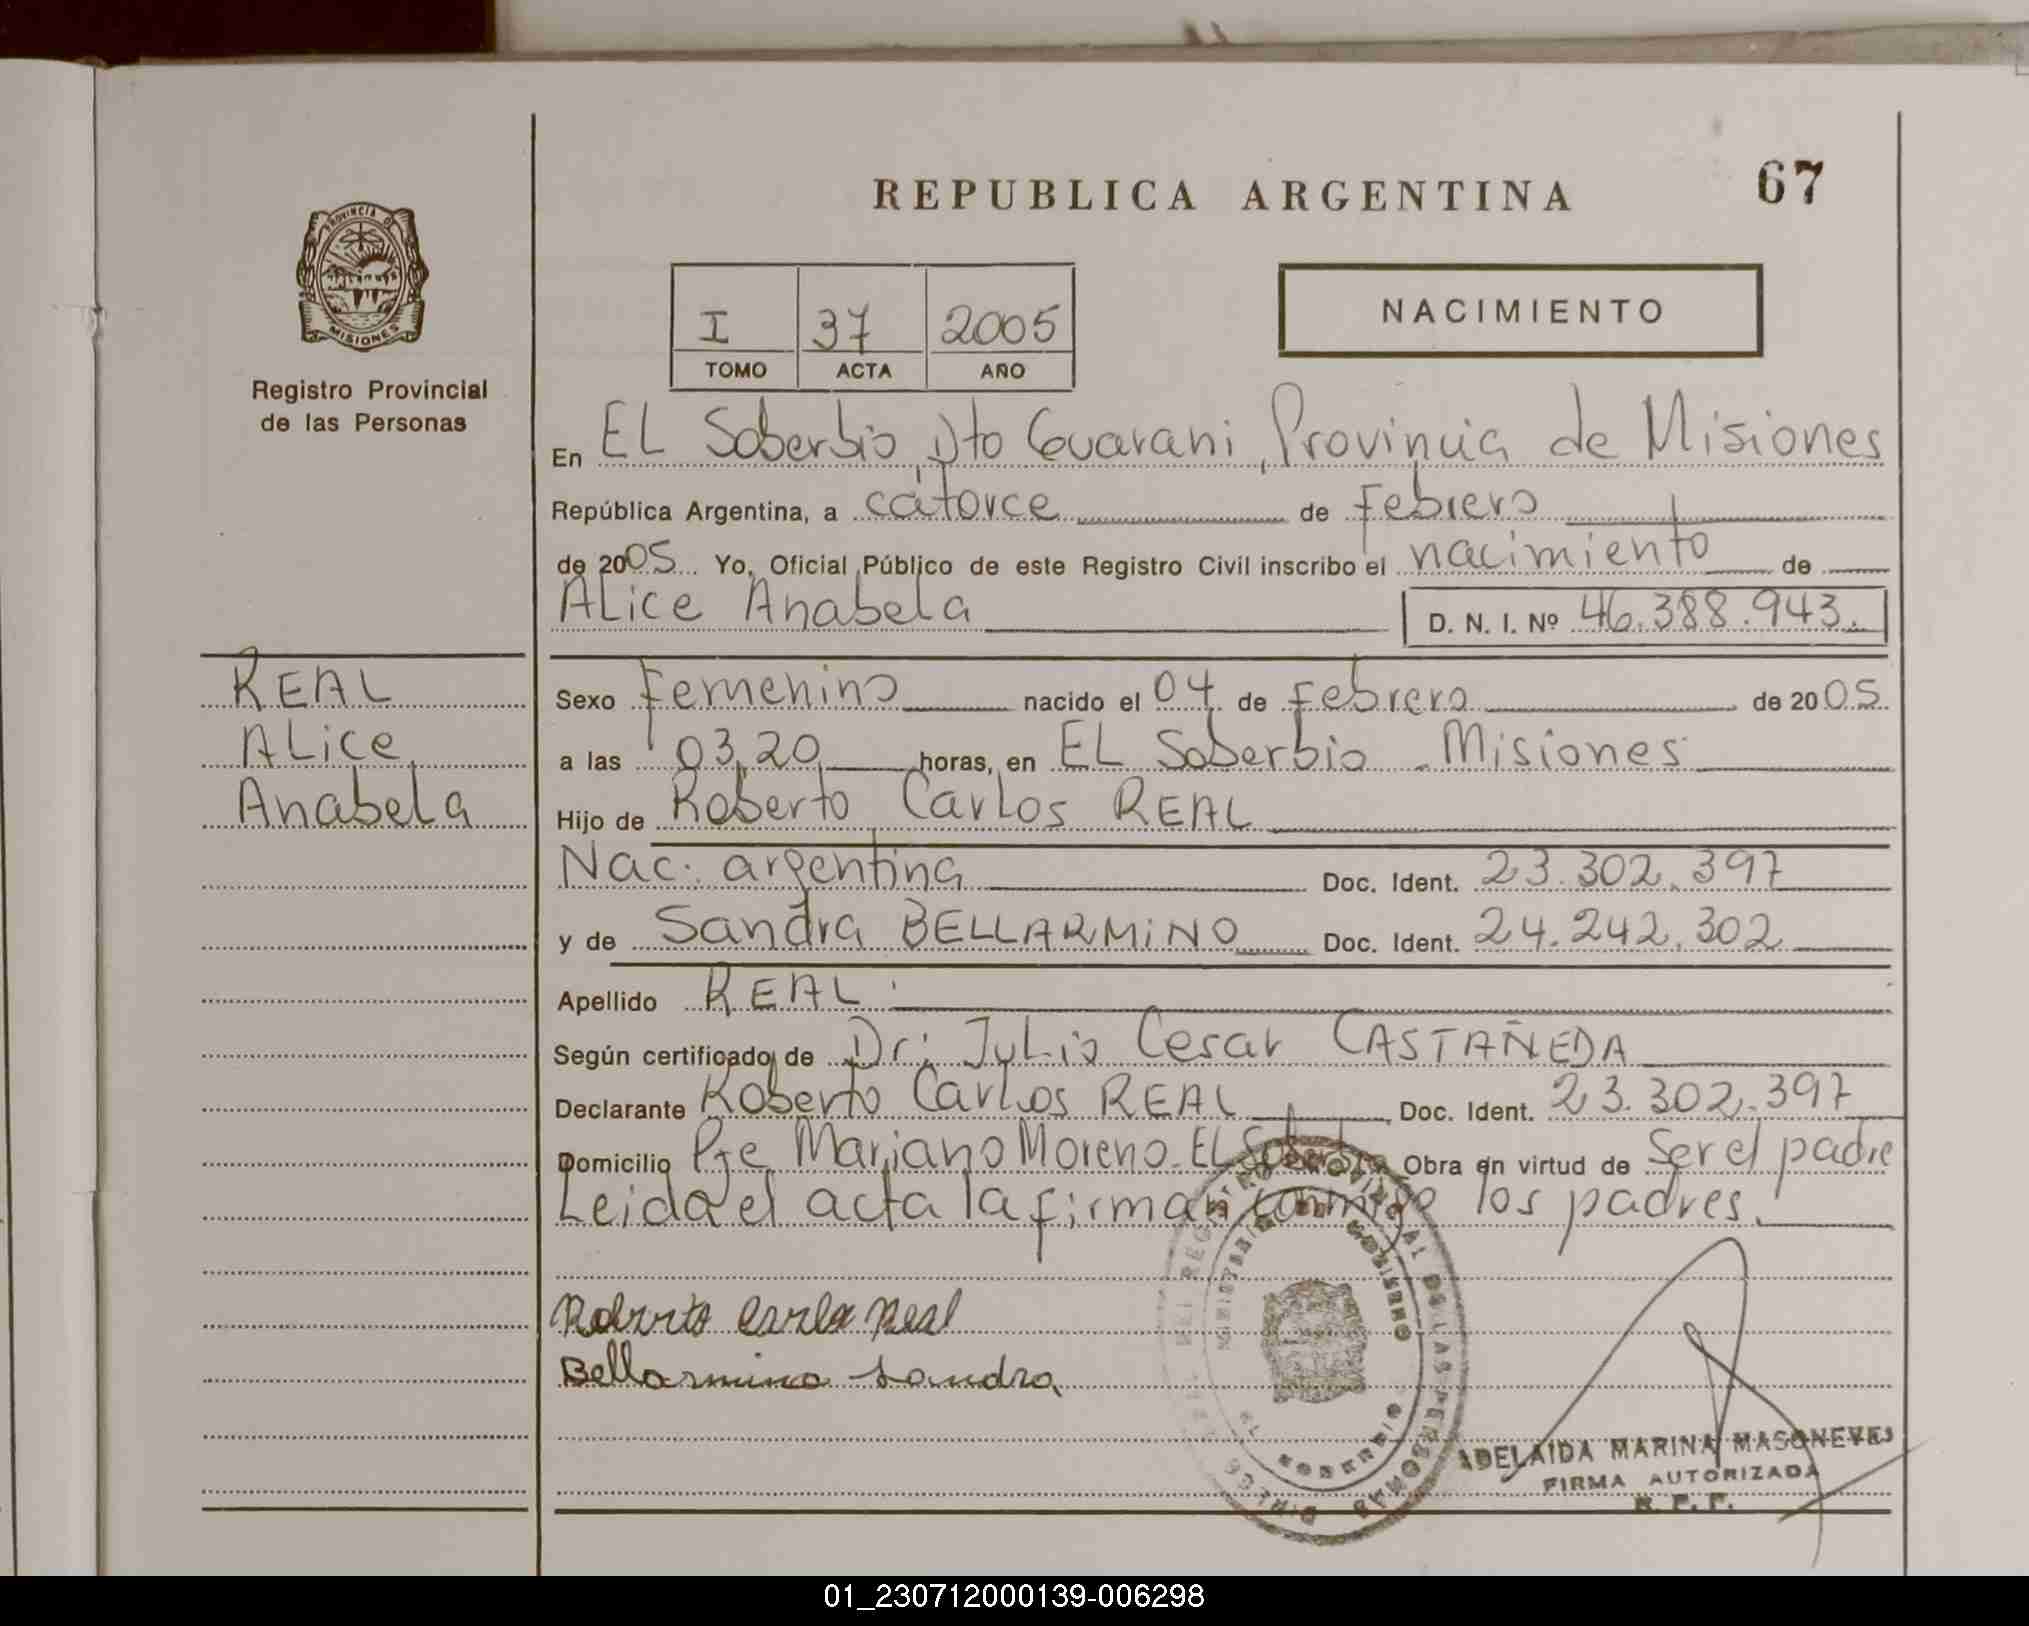 REPUBLICA ARGENTINA
67
PROVINCIA DE
MISIONES
Registro Provincial
de las Personas
I 37 2005
TOMO ACTA AÑO
NACIMIENTO
En EL Soberbio, Dto Guarani, Provincia de Misiones
República Argentina, a catorce de Febrero
de 2005 Yo, Oficial Público de este Registro Civil inscribo el nacimiento de
ALice Anabela D. N. I. Nº 46.388.943.
REAL
ALice
Anabela
Sexo Femenino nacido el 04 de Febrero de 2005
a las 03,20 horas, en EL Soberbio - Misiones
Hijo de Roberto Carlos REAL
Nac. argentina Doc. Ident. 23.302.397
y de Sandra BELLARMiNO Doc. Ident. 24.242.302
Apellido REAL
Según certificado de Dr: Julio Cesar CASTAÑEDA
Declarante Roberto Carlos REAL Doc. Ident. 23.302.397
Domicilio Pje Mariano Moreno - EL Soberbio Obra en virtud de Ser el padre
Leida el acta la firman conmigo los padres.
Roberto Carlos Real
Bellarmino Sandra
MINISTERIO DE GOBIERNO
EL SOBERBIO
ADELAIDA MARINA MASONEVES
FIRMA AUTORIZADA
R. P. P.
01_230712000139-006298